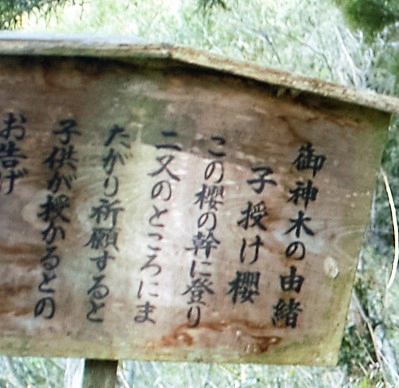 御神木の由緒
子授け櫻
この櫻の幹に登り
二又のところにま
たがり祈願すると
子供が授かるとの
お告げ